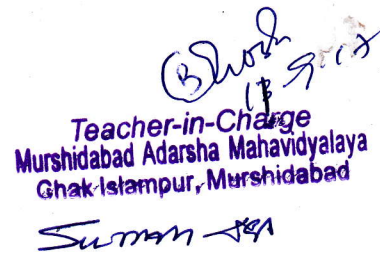 Ghosh
Teacher-in-Charge
Murshidabad Adarsha Mahavidyalaya
Chak Islampur, Murshidabad